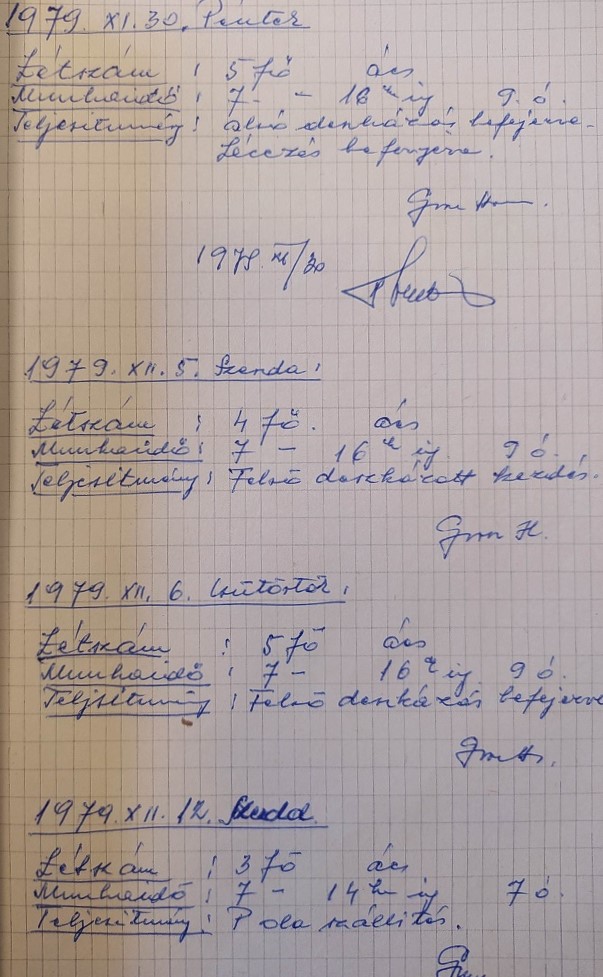 1979. XI. 30. Péntek
Létszám : 5 fő ács
Munkaidő : 7 - 16 h ig 9 ó.
Teljesítmény : alsó deszkázás befejezve.
Lécezés befejezve.
1979. XI/30
1979. XII. 5. Szerda :
Létszám : 4 fő. ács
Munkaidő : 7 - 16 h ig. 9 ó.
Teljesítmény : Felső deszkázott kezdés.
1979. XII. 6. Csütörtök :
Létszám : 5 fő ács
Munkaidő : 7 - 16 h ig. 9 ó.
Teljesítmény : Felső deszkázás befejezve
1979. XII. 12. Szerda
Létszám : 3 fő ács
Munkaidő : 7 - 14 h ig 7 ó.
Teljesítmény : Pala szállítás.